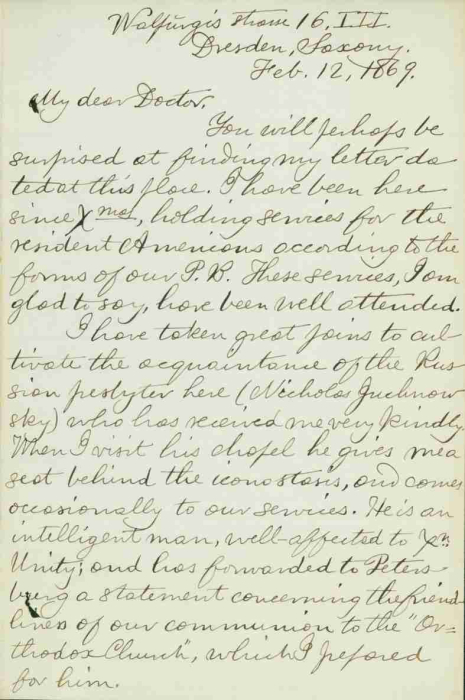 Walpurgis strasse 16, III.
Dresden, Saxony.
Feb. 12, 1869.
My dear Doctor,
You will perhaps be
surprised at finding my letter da-
ted at this place. I have been here
since Xmas, holding services for the
resident Americans according to the
forms of our P.B. These services, I am
glad to say, have been well attended.
I have taken great pains to cul-
tivate the acquaintance of the Rus-
sian presbyter here (Nicholas Juchnow-
sky) who has received me very kindly.
When I visit his chapel he gives me a
seat behind the iconostasis, and comes
occasionally to our services. He is an
intelligent man, well-affected to Xn
Unity; and has forwarded to Peters-
burg a statement concerning the friend-
liness of our communion to the "Or-
thodox Church", which I prepared
for him.